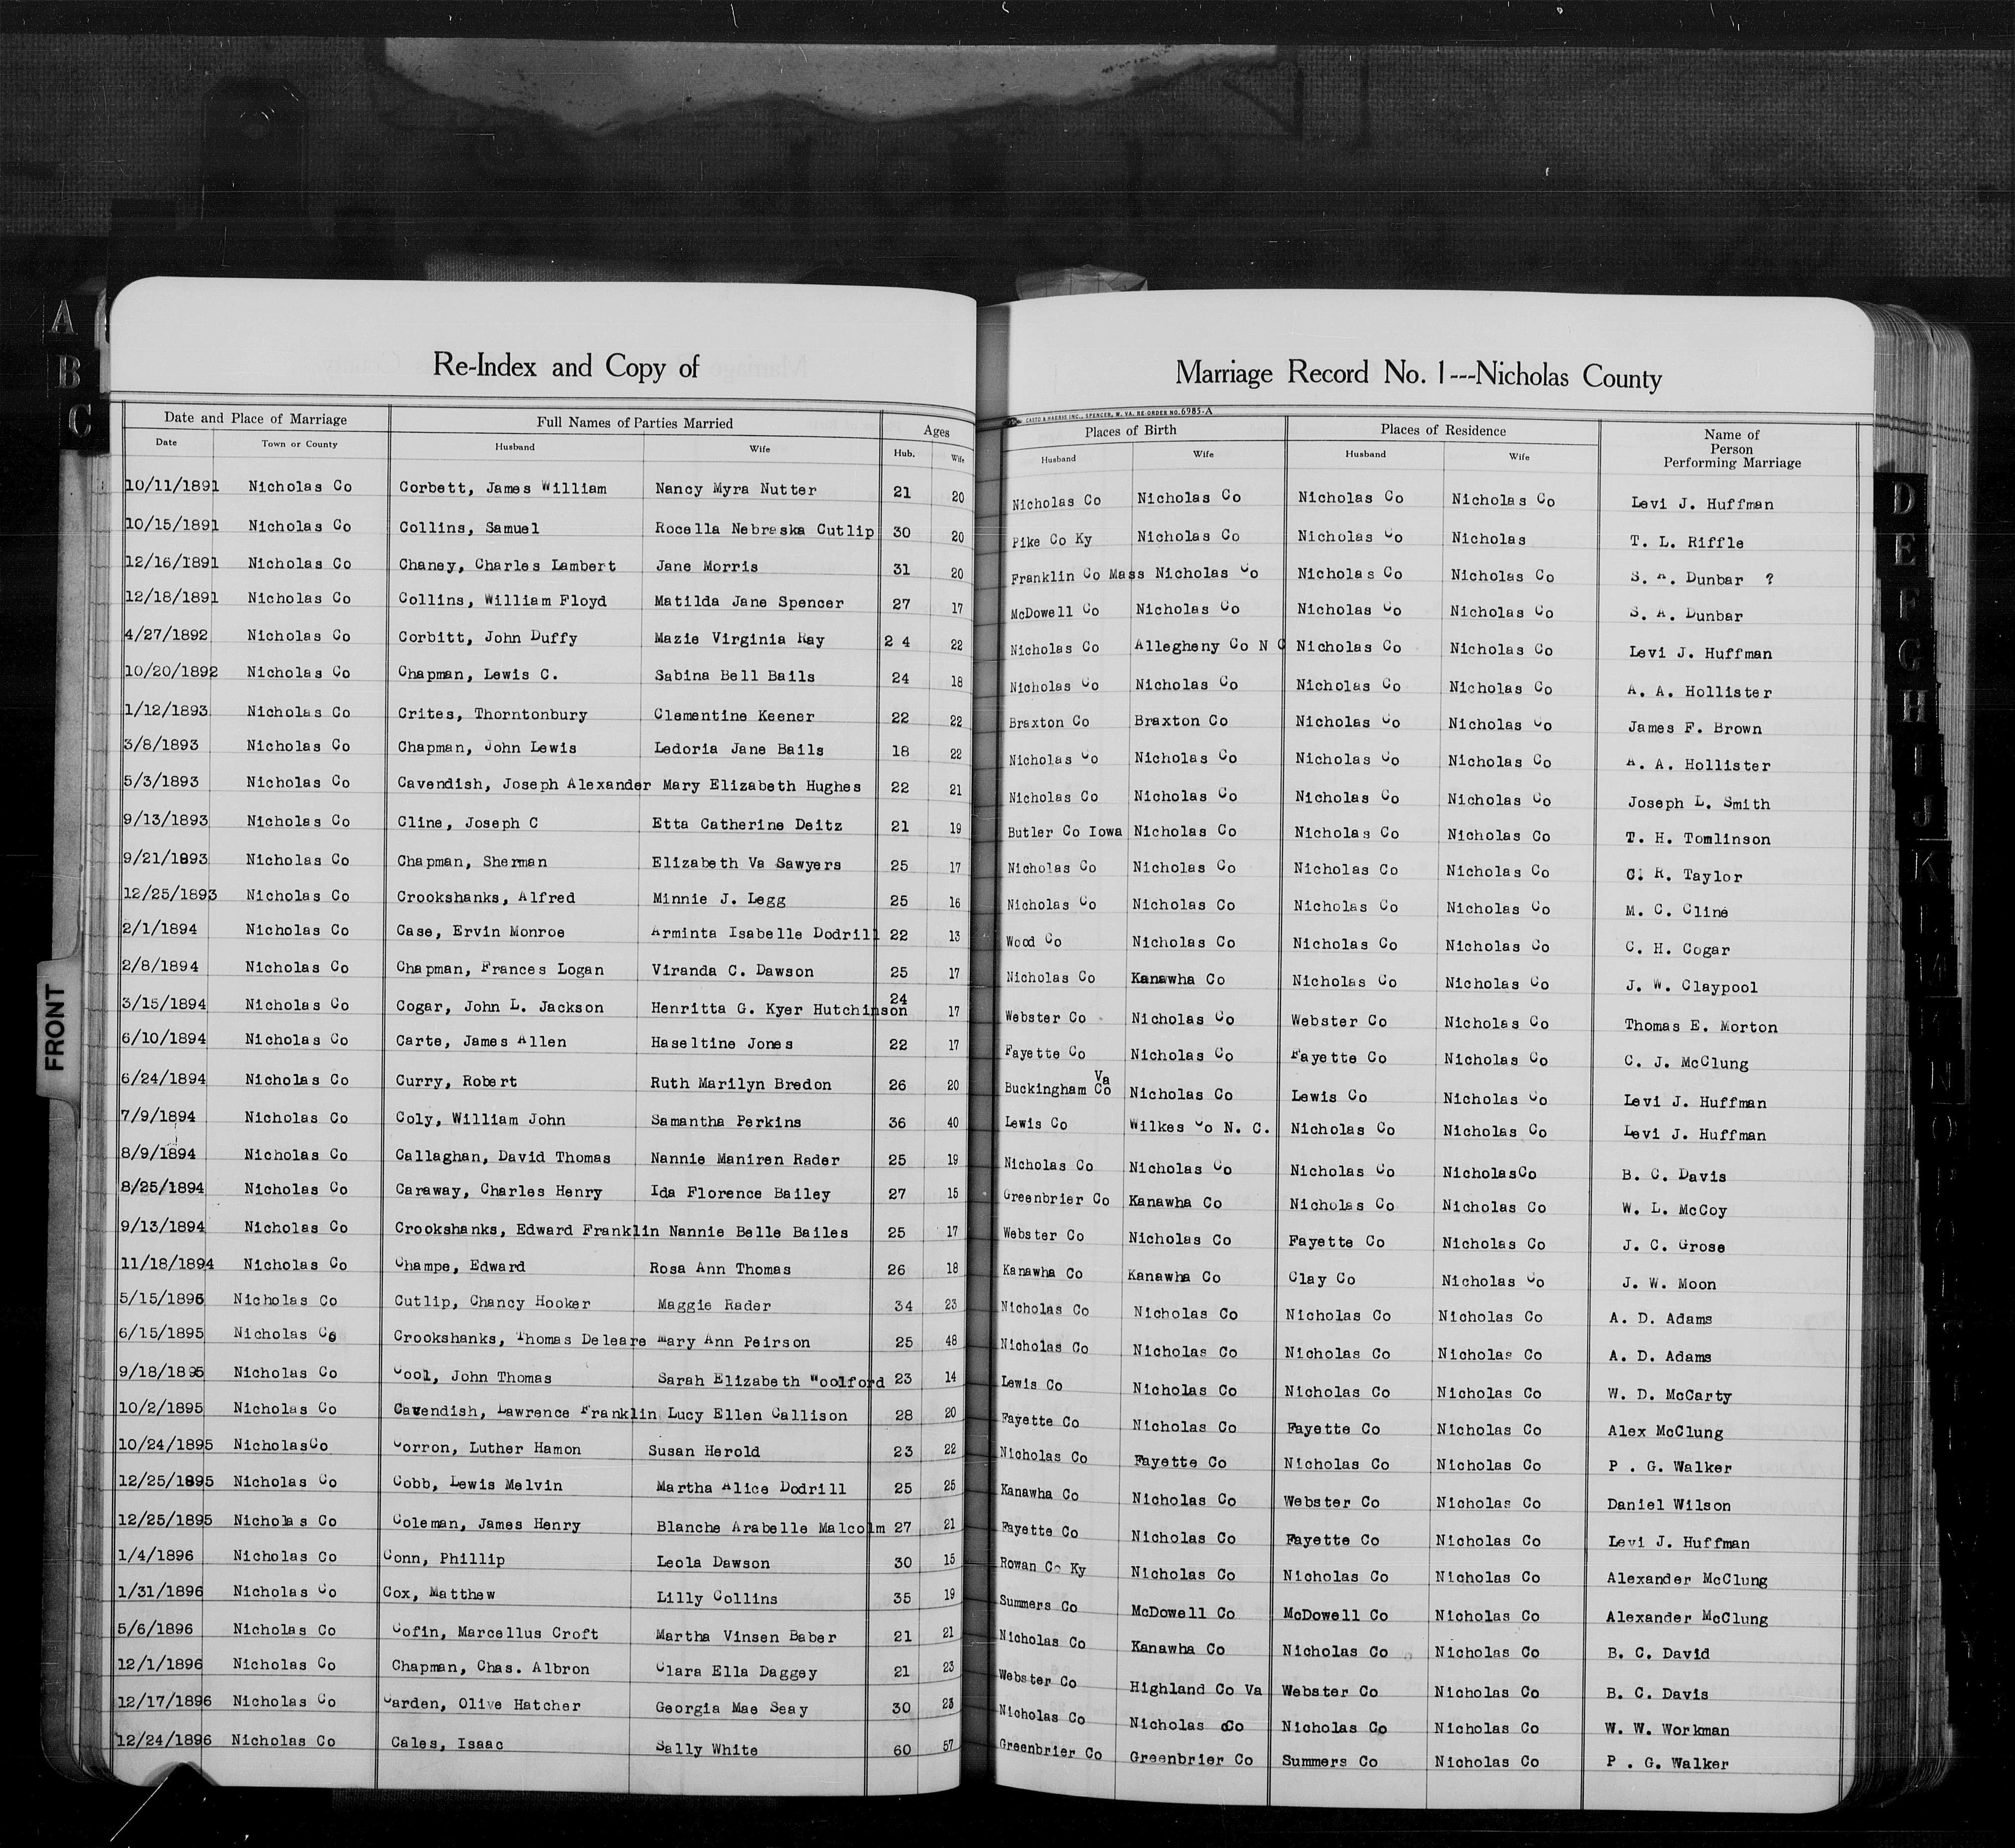 Re-Index and Copy of Marriage Record No. 1---Nicholas County
CASTO & HARRIS INC., SPENCER, W. VA. RE-ORDER NO. 6985-A
Date and Place of Marriage Full Names of Parties Married Ages Places of Birth Places of Residence Name of Person Performing Marriage
Date Town or County Husband Wife Hub. Wife Husband Wife Husband Wife
10/11/1891 Nicholas Co Corbett, James William Nancy Myra Nutter 21 20 Nicholas Co Nicholas Co Nicholas Co Nicholas Co Levi J. Huffman
10/15/1891 Nicholas Co Collins, Samuel Rocella Nebraska Cutlip 30 20 Pike Co Ky Nicholas Co Nicholas Co Nicholas T. L. Riffle
12/16/1891 Nicholas Co Chaney, Charles Lambert Jane Morris 31 20 Franklin Co Mass Nicholas Co Nicholas Co Nicholas Co S. A. Dunbar ?
12/18/1891 Nicholas Co Collins, William Floyd Matilda Jane Spencer 27 17 McDowell Co Nicholas Co Nicholas Co Nicholas Co S. A. Dunbar
4/27/1892 Nicholas Co Corbitt, John Duffy Mazie Virginia Ray 2 4 22 Nicholas Co Allegheny Co N C Nicholas Co Nicholas Co Levi J. Huffman
10/20/1892 Nicholas Co Chapman, Lewis C. Sabina Bell Bails 24 18 Nicholas Co Nicholas Co Nicholas Co Nicholas Co A. A. Hollister
1/12/1893 Nicholas Co Crites, Thorntonbury Clementine Keener 22 22 Braxton Co Braxton Co Nicholas Co Nicholas Co James F. Brown
3/8/1893 Nicholas Co Chapman, John Lewis Ledoria Jane Bails 18 22 Nicholas Co Nicholas Co Nicholas Co Nicholas Co A. A. Hollister
5/3/1893 Nicholas Co Cavendish, Joseph Alexander Mary Elizabeth Hughes 22 21 Nicholas Co Nicholas Co Nicholas Co Nicholas Co Joseph L. Smith
9/13/1893 Nicholas Co Cline, Joseph C Etta Catherine Deitz 21 19 Butler Co Iowa Nicholas Co Nicholas Co Nicholas Co T. H. Tomlinson
9/21/1893 Nicholas Co Chapman, Sherman Elizabeth Va Sawyers 25 17 Nicholas Co Nicholas Co Nicholas Co Nicholas Co C. R. Taylor
12/25/1893 Nicholas Co Crookshanks, Alfred Minnie J. Legg 25 16 Nicholas Co Nicholas Co Nicholas Co Nicholas Co M. C. Cline
2/1/1894 Nicholas Co Case, Ervin Monroe Arminta Isabelle Dodrill 22 13 Wood Co Nicholas Co Nicholas Co Nicholas Co C. H. Cogar
2/8/1894 Nicholas Co Chapman, Frances Logan Viranda C. Dawson 25 17 Nicholas Co Kanawha Co Nicholas Co Nicholas Co J. W. Claypool
3/15/1894 Nicholas Co Cogar, John L. Jackson Henritta G. Kyer Hutchinson 24 17 Webster Co Nicholas Co Webster Co Nicholas Co Thomas E. Morton
6/10/1894 Nicholas Co Carte, James Allen Haseltine Jones 22 17 Fayette Co Nicholas Co Fayette Co Nicholas Co C. J. McClung
6/24/1894 Nicholas Co Curry, Robert Ruth Marilyn Bredon 26 20 Buckingham Co Va Nicholas Co Lewis Co Nicholas Co Levi J. Huffman
7/9/1894 Nicholas Co Coly, William John Samantha Perkins 36 40 Lewis Co Wilkes Co N. C. Nicholas Co Nicholas Co Levi J. Huffman
8/9/1894 Nicholas Co Callaghan, David Thomas Nannie Maniren Rader 25 19 Nicholas Co Nicholas Co Nicholas Co NicholasCo B. C. Davis
8/25/1894 Nicholas Co Caraway, Charles Henry Ida Florence Bailey 27 15 Greenbrier Co Kanawha Co Nicholas Co Nicholas Co W. L. McCoy
9/13/1894 Nicholas Co Crookshanks, Edward Franklin Nannie Belle Bailes 25 17 Webster Co Nicholas Co Fayette Co Nicholas Co J. C. Grose
11/18/1894 Nicholas Co Champe, Edward Rosa Ann Thomas 26 18 Kanawha Co Kanawha Co Clay Co Nicholas Co J. W. Moon
5/15/1895 Nicholas Co Cutlip, Chancy Hooker Maggie Rader 34 23 Nicholas Co Nicholas Co Nicholas Co Nicholas Co A. D. Adams
6/15/1895 Nicholas Co Crookshanks, Thomas Deleare Mary Ann Peirson 25 48 Nicholas Co Nicholas Co Nicholas Co Nicholas Co A. D. Adams
9/18/1895 Nicholas Co Cool, John Thomas Sarah Elizabeth Woolford 23 14 Lewis Co Nicholas Co Nicholas Co Nicholas Co W. D. McCarty
10/2/1895 Nicholas Co Cavendish, Lawrence Franklin Lucy Ellen Callison 28 20 Fayette Co Nicholas Co Fayette Co Nicholas Co Alex McClung
10/24/1895 NicholasCo Corron, Luther Hamon Susan Herold 23 22 Nicholas Co Fayette Co Nicholas Co Nicholas Co P . G. Walker
12/25/1895 Nicholas Co Cobb, Lewis Melvin Martha Alice Dodrill 25 25 Kanawha Co Nicholas Co Webster Co Nicholas Co Daniel Wilson
12/25/1895 Nicholas Co Coleman, James Henry Blanche Arabelle Malcolm 27 21 Fayette Co Nicholas Co Fayette Co Nicholas Co Levi J. Huffman
1/4/1896 Nicholas Co Conn, Phillip Leola Dawson 30 15 Rowan Co Ky Nicholas Co Nicholas Co Nicholas Co Alexander McClung
1/31/1896 Nicholas Co Cox, Matthew Lilly Collins 35 19 Summers Co McDowell Co McDowell Co Nicholas Co Alexander McClung
5/6/1896 Nicholas Co Cofin, Marcellus Croft Martha Vinsen Baber 21 21 Nicholas Co Kanawha Co Nicholas Co Nicholas Co B. C. David
12/1/1896 Nicholas Co Chapman, Chas. Albron Clara Ella Daggey 21 23 Webster Co Highland Co Va Webster Co Nicholas Co B. C. Davis
12/17/1896 Nicholas Co Carden, Olive Hatcher Georgia Mae Seay 30 23 Nicholas Co Nicholas Co Nicholas Co Nicholas Co W. W. Workman
12/24/1896 Nicholas Co Cales, Isaac Sally White 60 57 Greenbrier Co Greenbrier Co Summers Co Nicholas Co P . G. Walker
A
B
C
FRONT
D
E
F
G
H
I
J
K
L
M
N
O